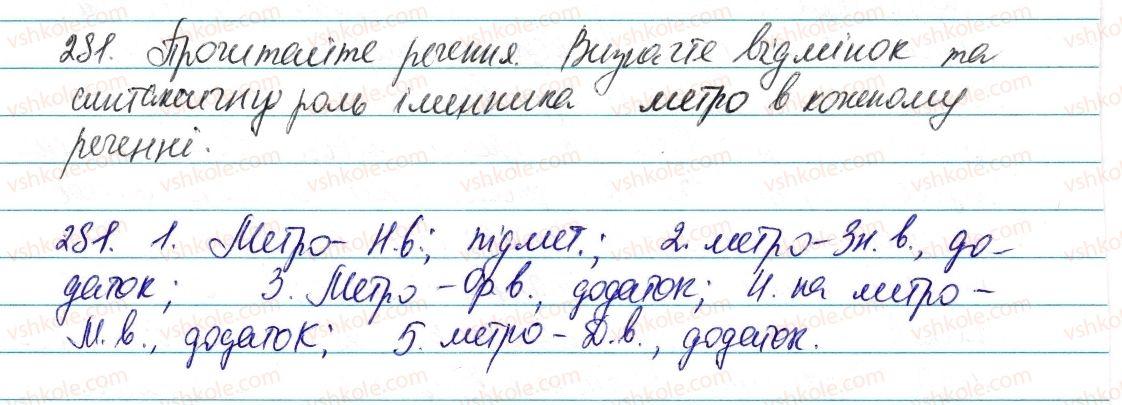 281. Прочитайте речення. Визначте відмінок та
синтаксичну роль іменника метро в кожному
реченні.
281. 1. Метро - Н.в.; підмет.; 2. метро - Зн. в., до-
даток; 3. Метро - Ор в., додаток; 4. на метро -
М. в., додаток; 5. метро - Д.в., додаток.